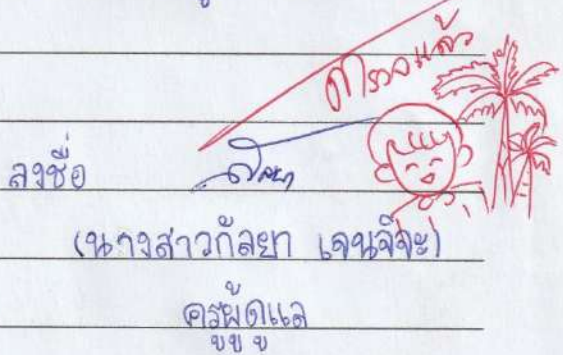 ตรวจแล้ว
ลงชื่อ
(นางสาวกัลยา เจนจิจะ)
ครูผู้ดูแล